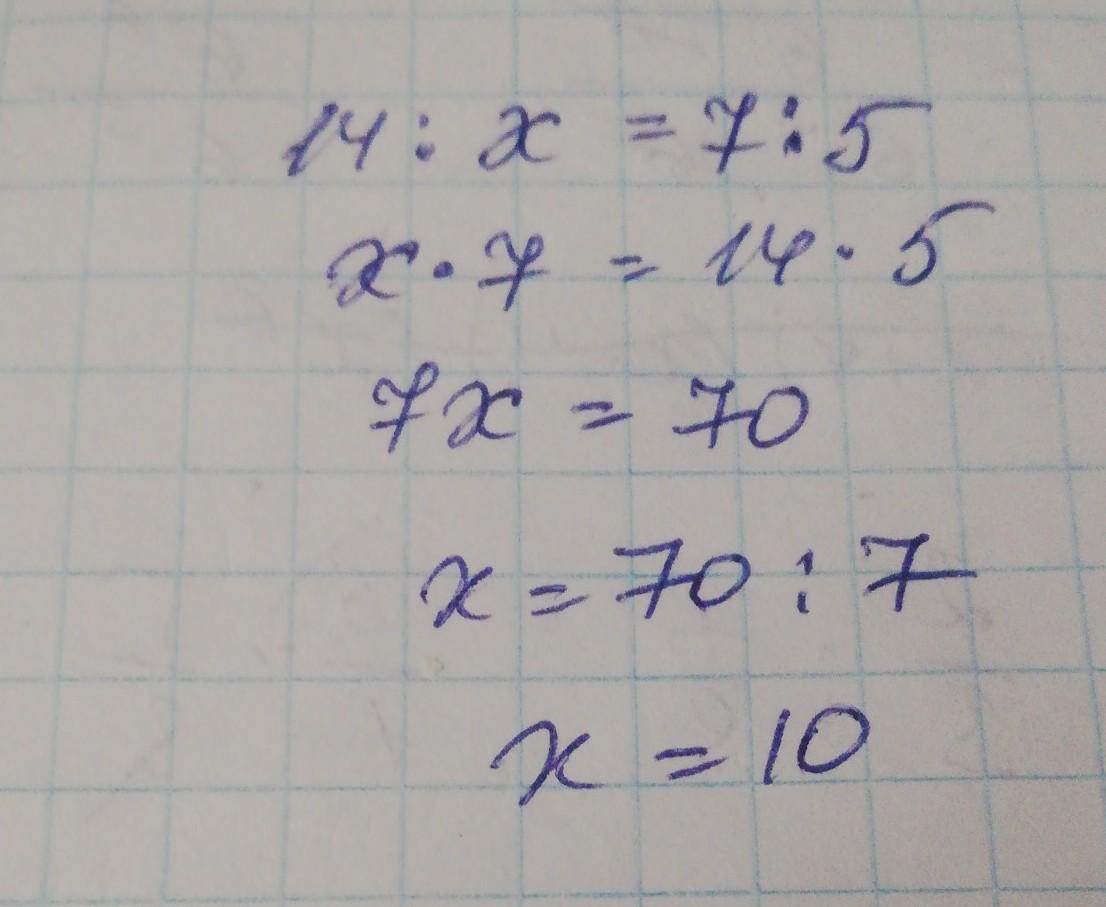 14 : x = 7 : 5
x · 7 = 14 · 5
7x = 70
x = 70 : 7
x = 10